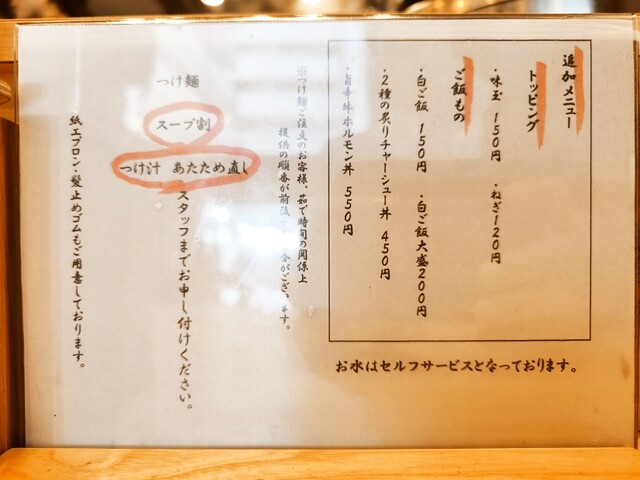 追加メニュー
トッピング
・味玉 150円 ・ねぎ120円
ご飯もの
・白ご飯 150円 ・白ご飯大盛200円
・2種の炙りチャーシュー丼 450円
・旨辛牛ホルモン丼 550円
お水はセルフサービスとなっております。
※つけ麺ご注文のお客様、茹で時間の関係上
提供の順番が前後 合がございます。
つけ麺
スープ割
つけ汁 あたため直し
スタッフまでお申し付けください。
紙エプロン・髪止めゴムもご用意しております。